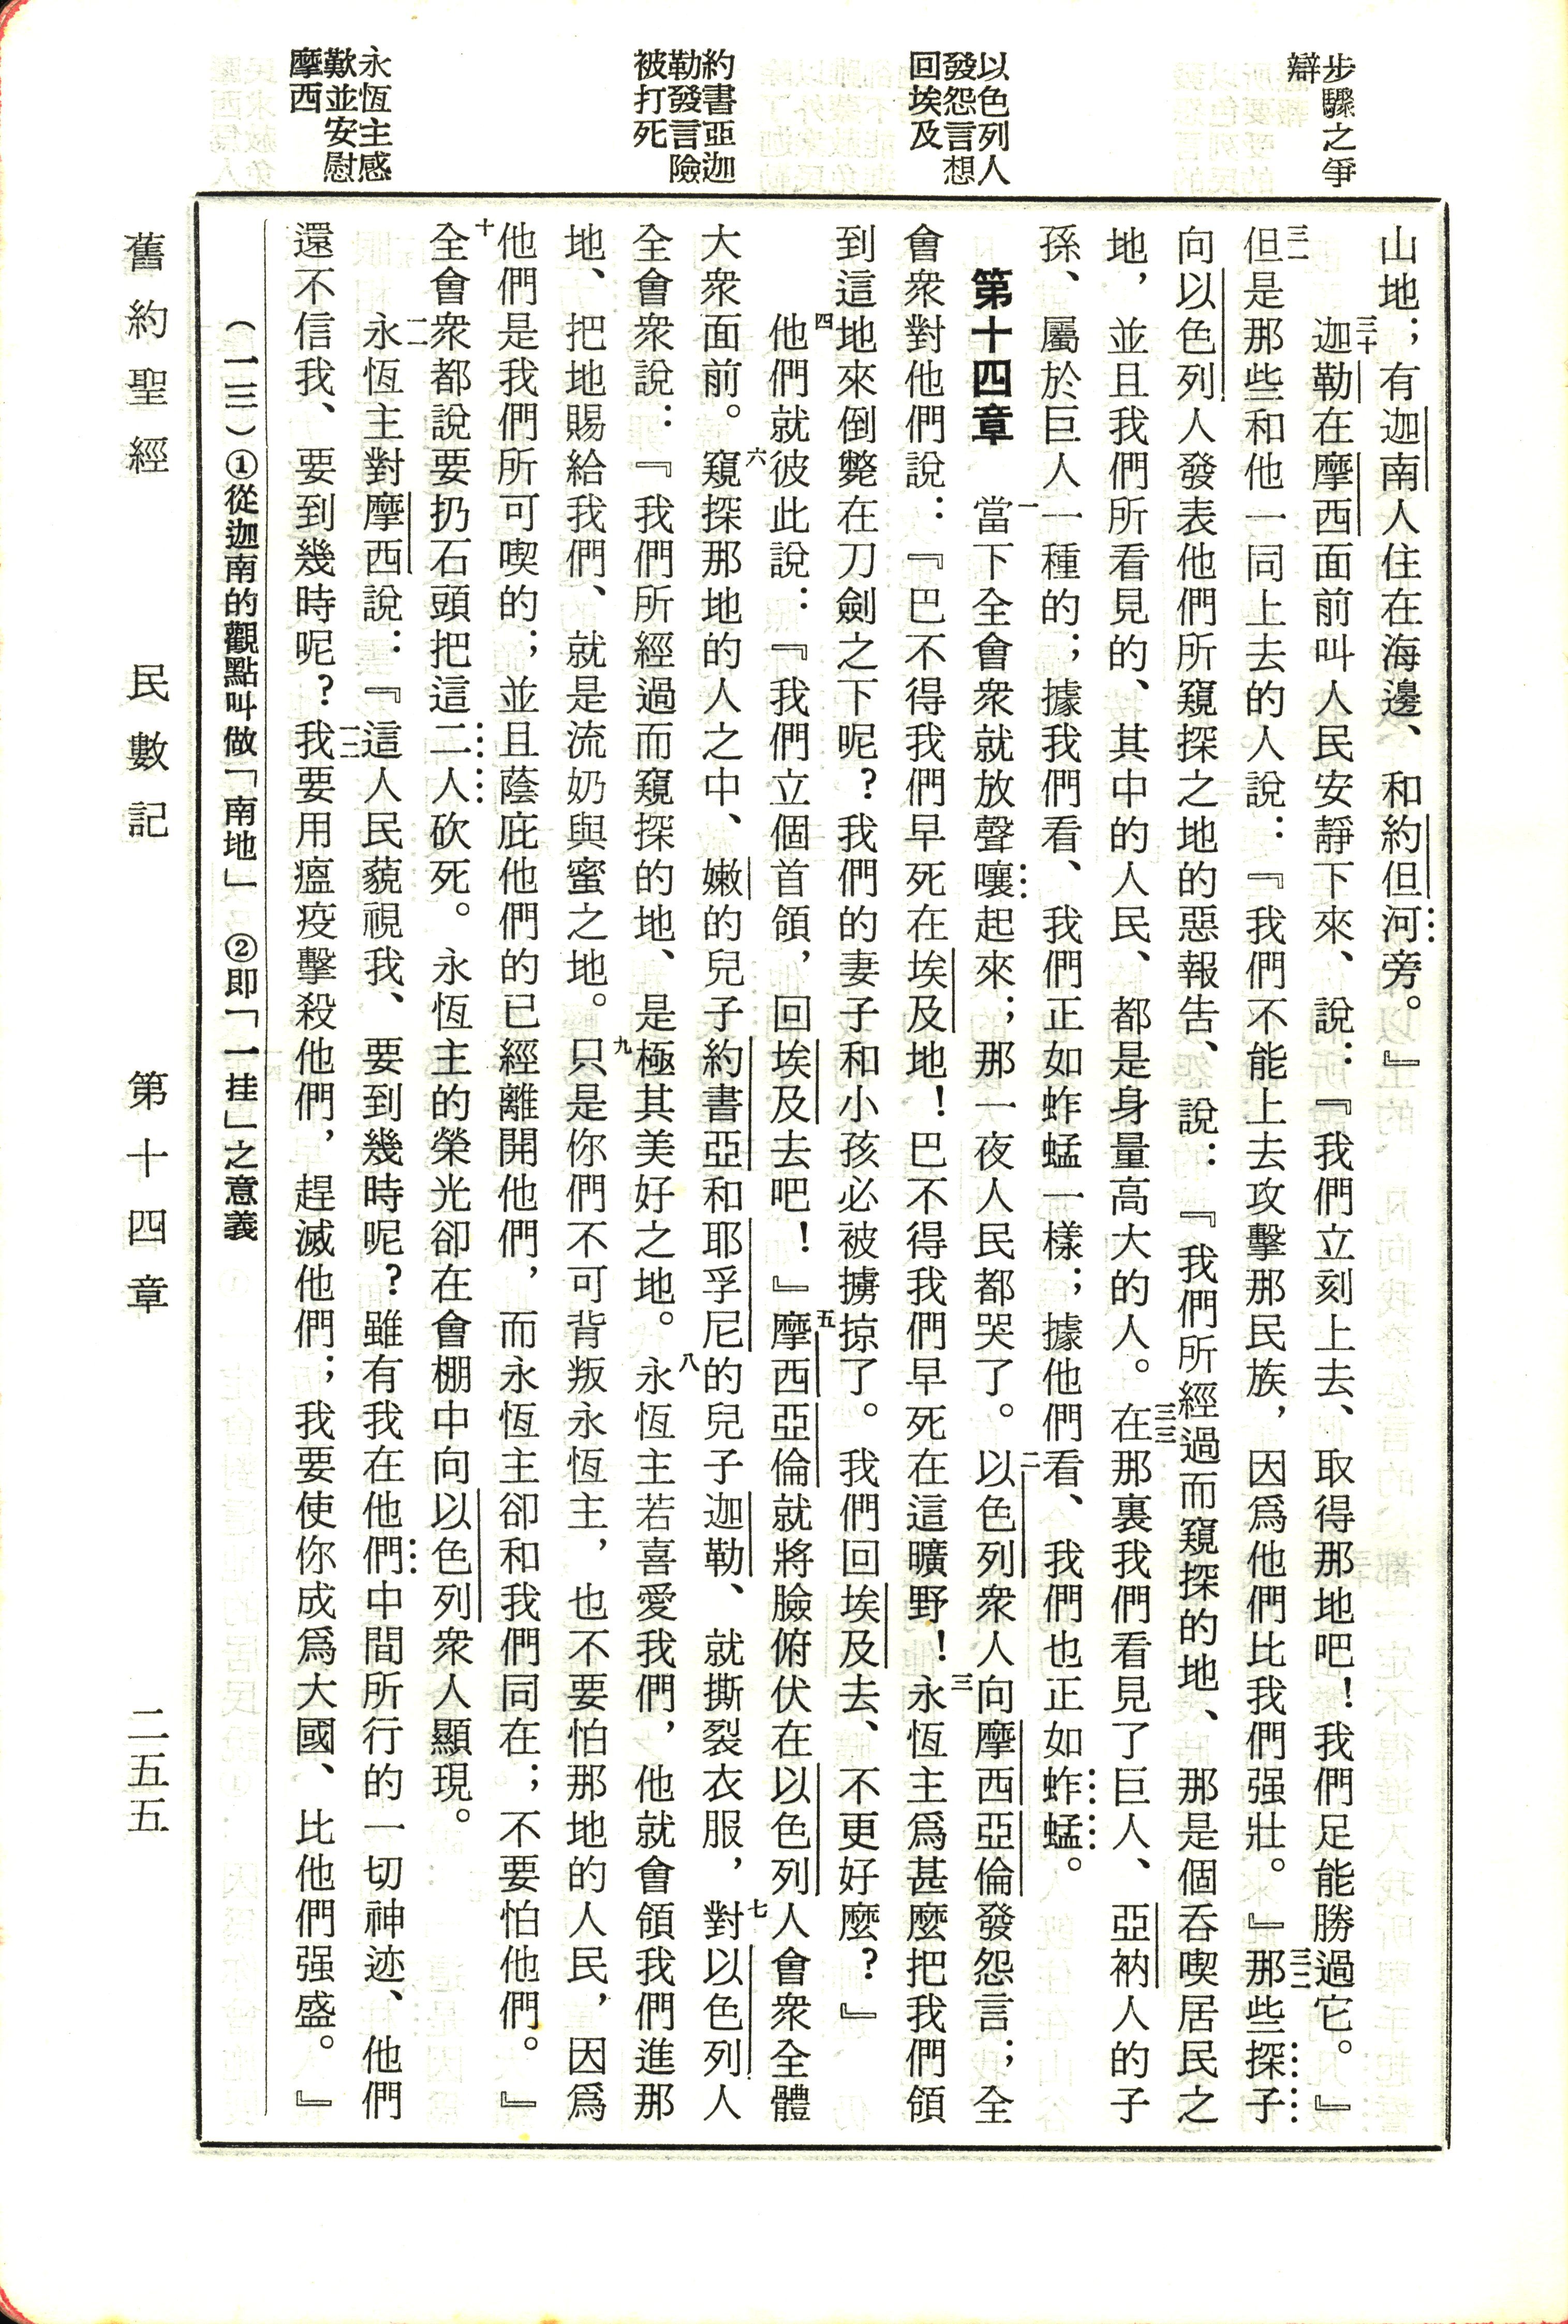 步驟之爭
辯
以色列人
發怨言想
回埃及
約書亞迦
勒發言險
被打死
永恆主感
歎並安慰
摩西
山地；有迦南人住在海邊、和約但河旁。』
三十迦勒在摩西面前叫人民安靜下來、說：『我們立刻上去、取得那地吧！我們足能勝過它。』
三一但是那些和他一同上去的人說：『我們不能上去攻擊那民族，因爲他們比我們强壯。』三二那些探子
向以色列人發表他們所窺探之地的惡報告、說：『我們所經過而窺探的地、那是個吞喫居民之
地，並且我們所看見的、其中的人民、都是身量高大的人。三三在那裏我們看見了巨人、亞衲人的子
孫、屬於巨人一種的；據我們看、我們正如蚱蜢一樣；據他們看、我們也正如蚱蜢。
第十四章　一當下全會衆就放聲嚷起來；那一夜人民都哭了。二以色列衆人向摩西亞倫發怨言；三全
會衆對他們說：『巴不得我們早死在埃及地！巴不得我們早死在這曠野！永恆主爲甚麼把我們領
到這地來倒斃在刀劍之下呢？我們的妻子和小孩必被擄掠了。我們回埃及去、不更好麼？』
四他們就彼此說：『我們立個首領，回埃及去吧！』五摩西亞倫就將臉俯伏在以色列人會衆全體
大衆面前。六窺探那地的人之中、嫩的兒子約書亞和耶孚尼的兒子迦勒、就撕裂衣服，七對以色列人
全會衆說：『我們所經過而窺探的地、是極其美好之地。八永恆主若喜愛我們，他就會領我們進那
地、把地賜給我們、就是流奶與蜜之地。九只是你們不可背叛永恆主，也不要怕那地的人民，因爲
他們是我們所可喫的；並且蔭庇他們的已經離開他們，而永恆主卻和我們同在；不要怕他們。』
十全會衆都說要扔石頭把這二人砍死。永恆主的榮光卻在會棚中向以色列衆人顯現。
一一永恆主對摩西說：『這人民藐視我、要到幾時呢？雖有我在他們中間所行的一切神迹、他們
還不信我、要到幾時呢？一二我要用瘟疫擊殺他們，趕滅他們；我要使你成爲大國、比他們强盛。』
（一三）①從迦南的觀點叫做「南地」　②即「一挂」之意義
舊約聖經　民數記　第十四章　二五五